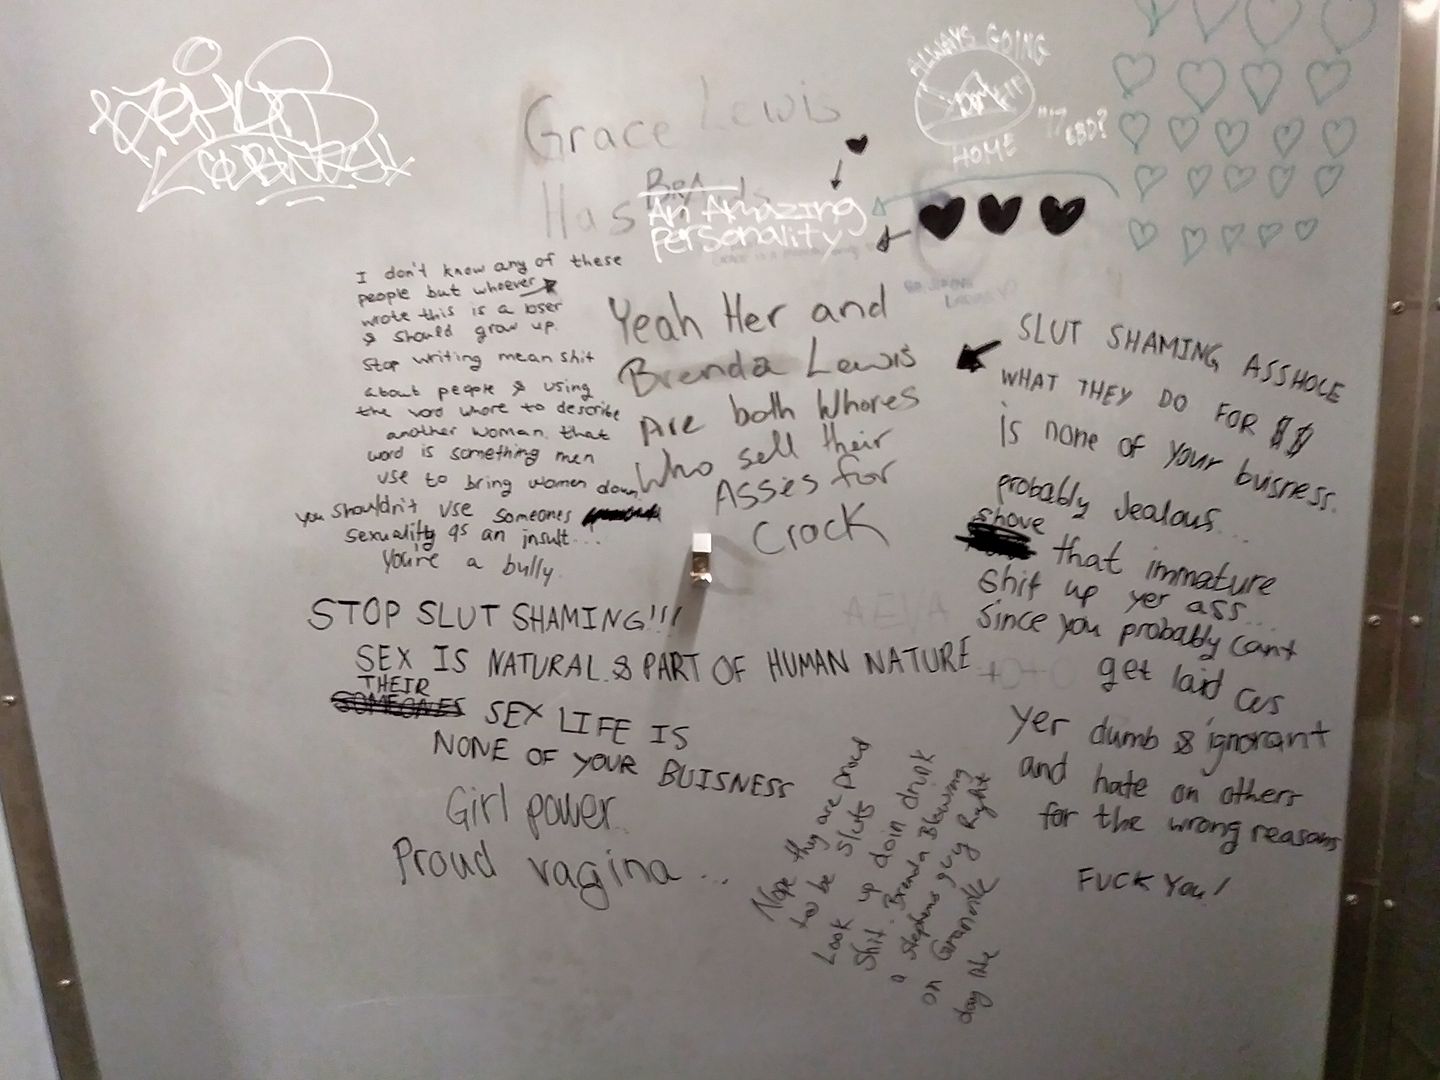 ALWAYS GOING
HOME
Grace Lewis
Has
An Amazing
Personality
I don't know any of these
people but whoever
wrote this is a loser
& should grow up.
Stop writing mean shit
about people & using
the word whore to describe
another woman. that
word is something men
use to bring women down
you shouldn't use someones
sexuality as an insult...
You're a bully.
Yeah Her and
Brenda Lewis
Are both Whores
Who sell their
Asses for
Crack
SLUT SHAMING ASSHOLE
WHAT THEY DO FOR $$
is none of your buisness.
probably Jealous...
shove
that immature
shit up yer ass...
since you probably can't
get laid cus
yer dumb & ignorant
and hate on others
for the wrong reasons
FUCK YOU!
AEVA
STOP SLUT SHAMING!!!
SEX IS NATURAL & PART OF HUMAN NATURE
THEIR
SOMEONES SEX LIFE IS
NONE OF YOUR BUISNESS
Girl power
Proud vagina...
Nope they are proud
to be sluts
Look up doin drunk
Shit. Brenda Blowing
a Stephens guy Right
on Granville